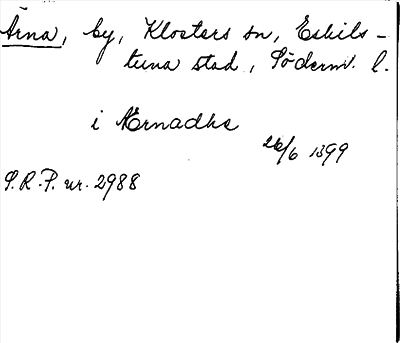 Ärna, by, Klosters sn, Eskils-
tuna stad, Söderm. l.
i Ærnadhe
26/6 1399
S.R.P. nr. 2988